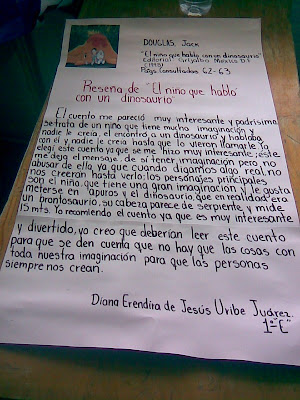 DOUGLAS, Jack
"El niño que hablo con un dinosaurio"
Editorial Grijalbo Mexico D.F
(1993)
Pags. Consultadas 62-63
Reseña de "El niño que hablo
con un dinosaurio"
El cuento me pareció muy interesante y padrísimo
se trata de un niño que tiene mucho imaginación y
nadie le creía el encontró a un dinosaurio y hablaba
con él y nadie le creía hasta que lo vieron llamarle Yo
elegí este cuento ya que se me hizo muy interesante; éste
me deja el mensaje de si tener imaginación pero no
abusar de ella ya que cuando digamos algo real no
nos creeran hasta verlo los personajes principales
son el niño que tiene una gran imaginación y le gusta
meterse en apuros y el dinosaurio, que en realidad era
un brontosaurio, su cabeza parece de serpiente y mide
15 mts. Yo recomiendo el cuento ya que es muy interesante
y divertido, yo creo que deberían leer este cuento
para que se den cuenta que no hay que las cosas con
toda nuestra imaginación para que las personas
siempre nos crean.
Diana Erendira de Jesús Uribe Juárez
1º "E"